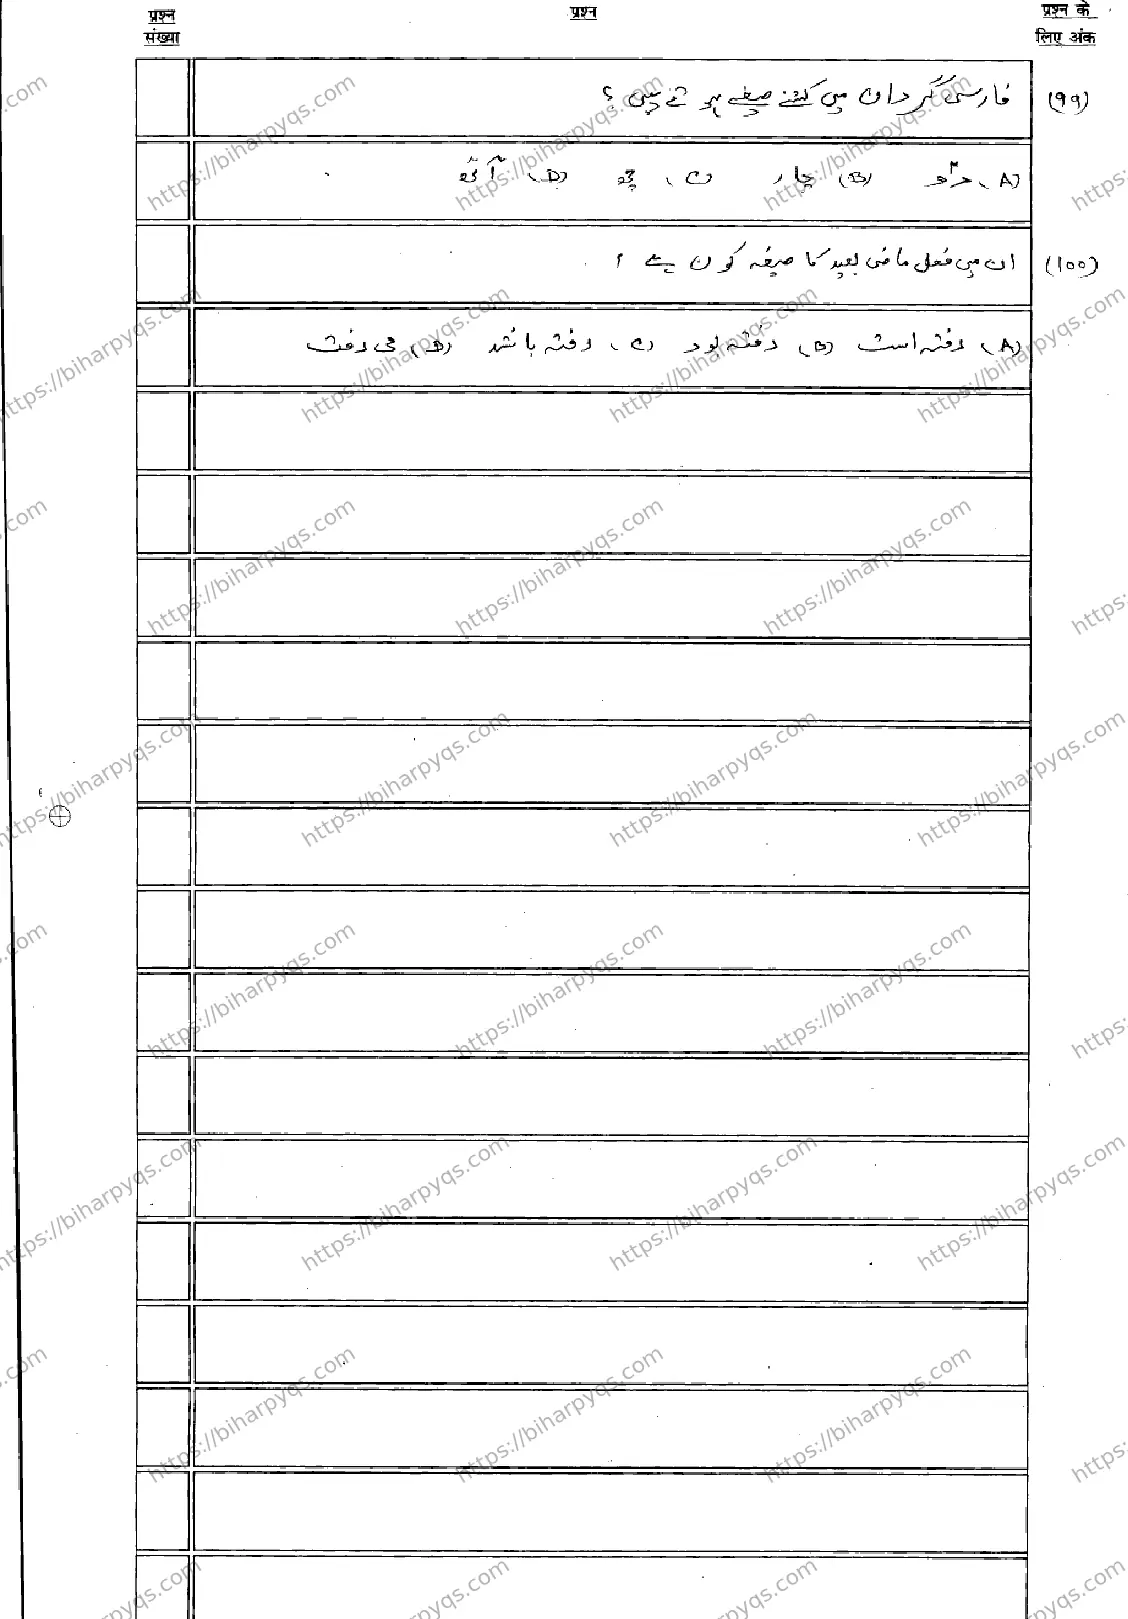 प्रश्न संख्या
प्रश्न
प्रश्न के लिए अंक
(99) فارسی گردان میں کتنے صیغے ہوتے ہیں ؟
(A) دو (B) چار (C) چھ (D) آٹھ
(100) ان میں فعل ماضی بعید کا صیغہ کون ہے ؟
(A) رفتہ است (B) رفتہ بود (C) رفتہ باشد (D) می رفت
https://biharpyqs.com